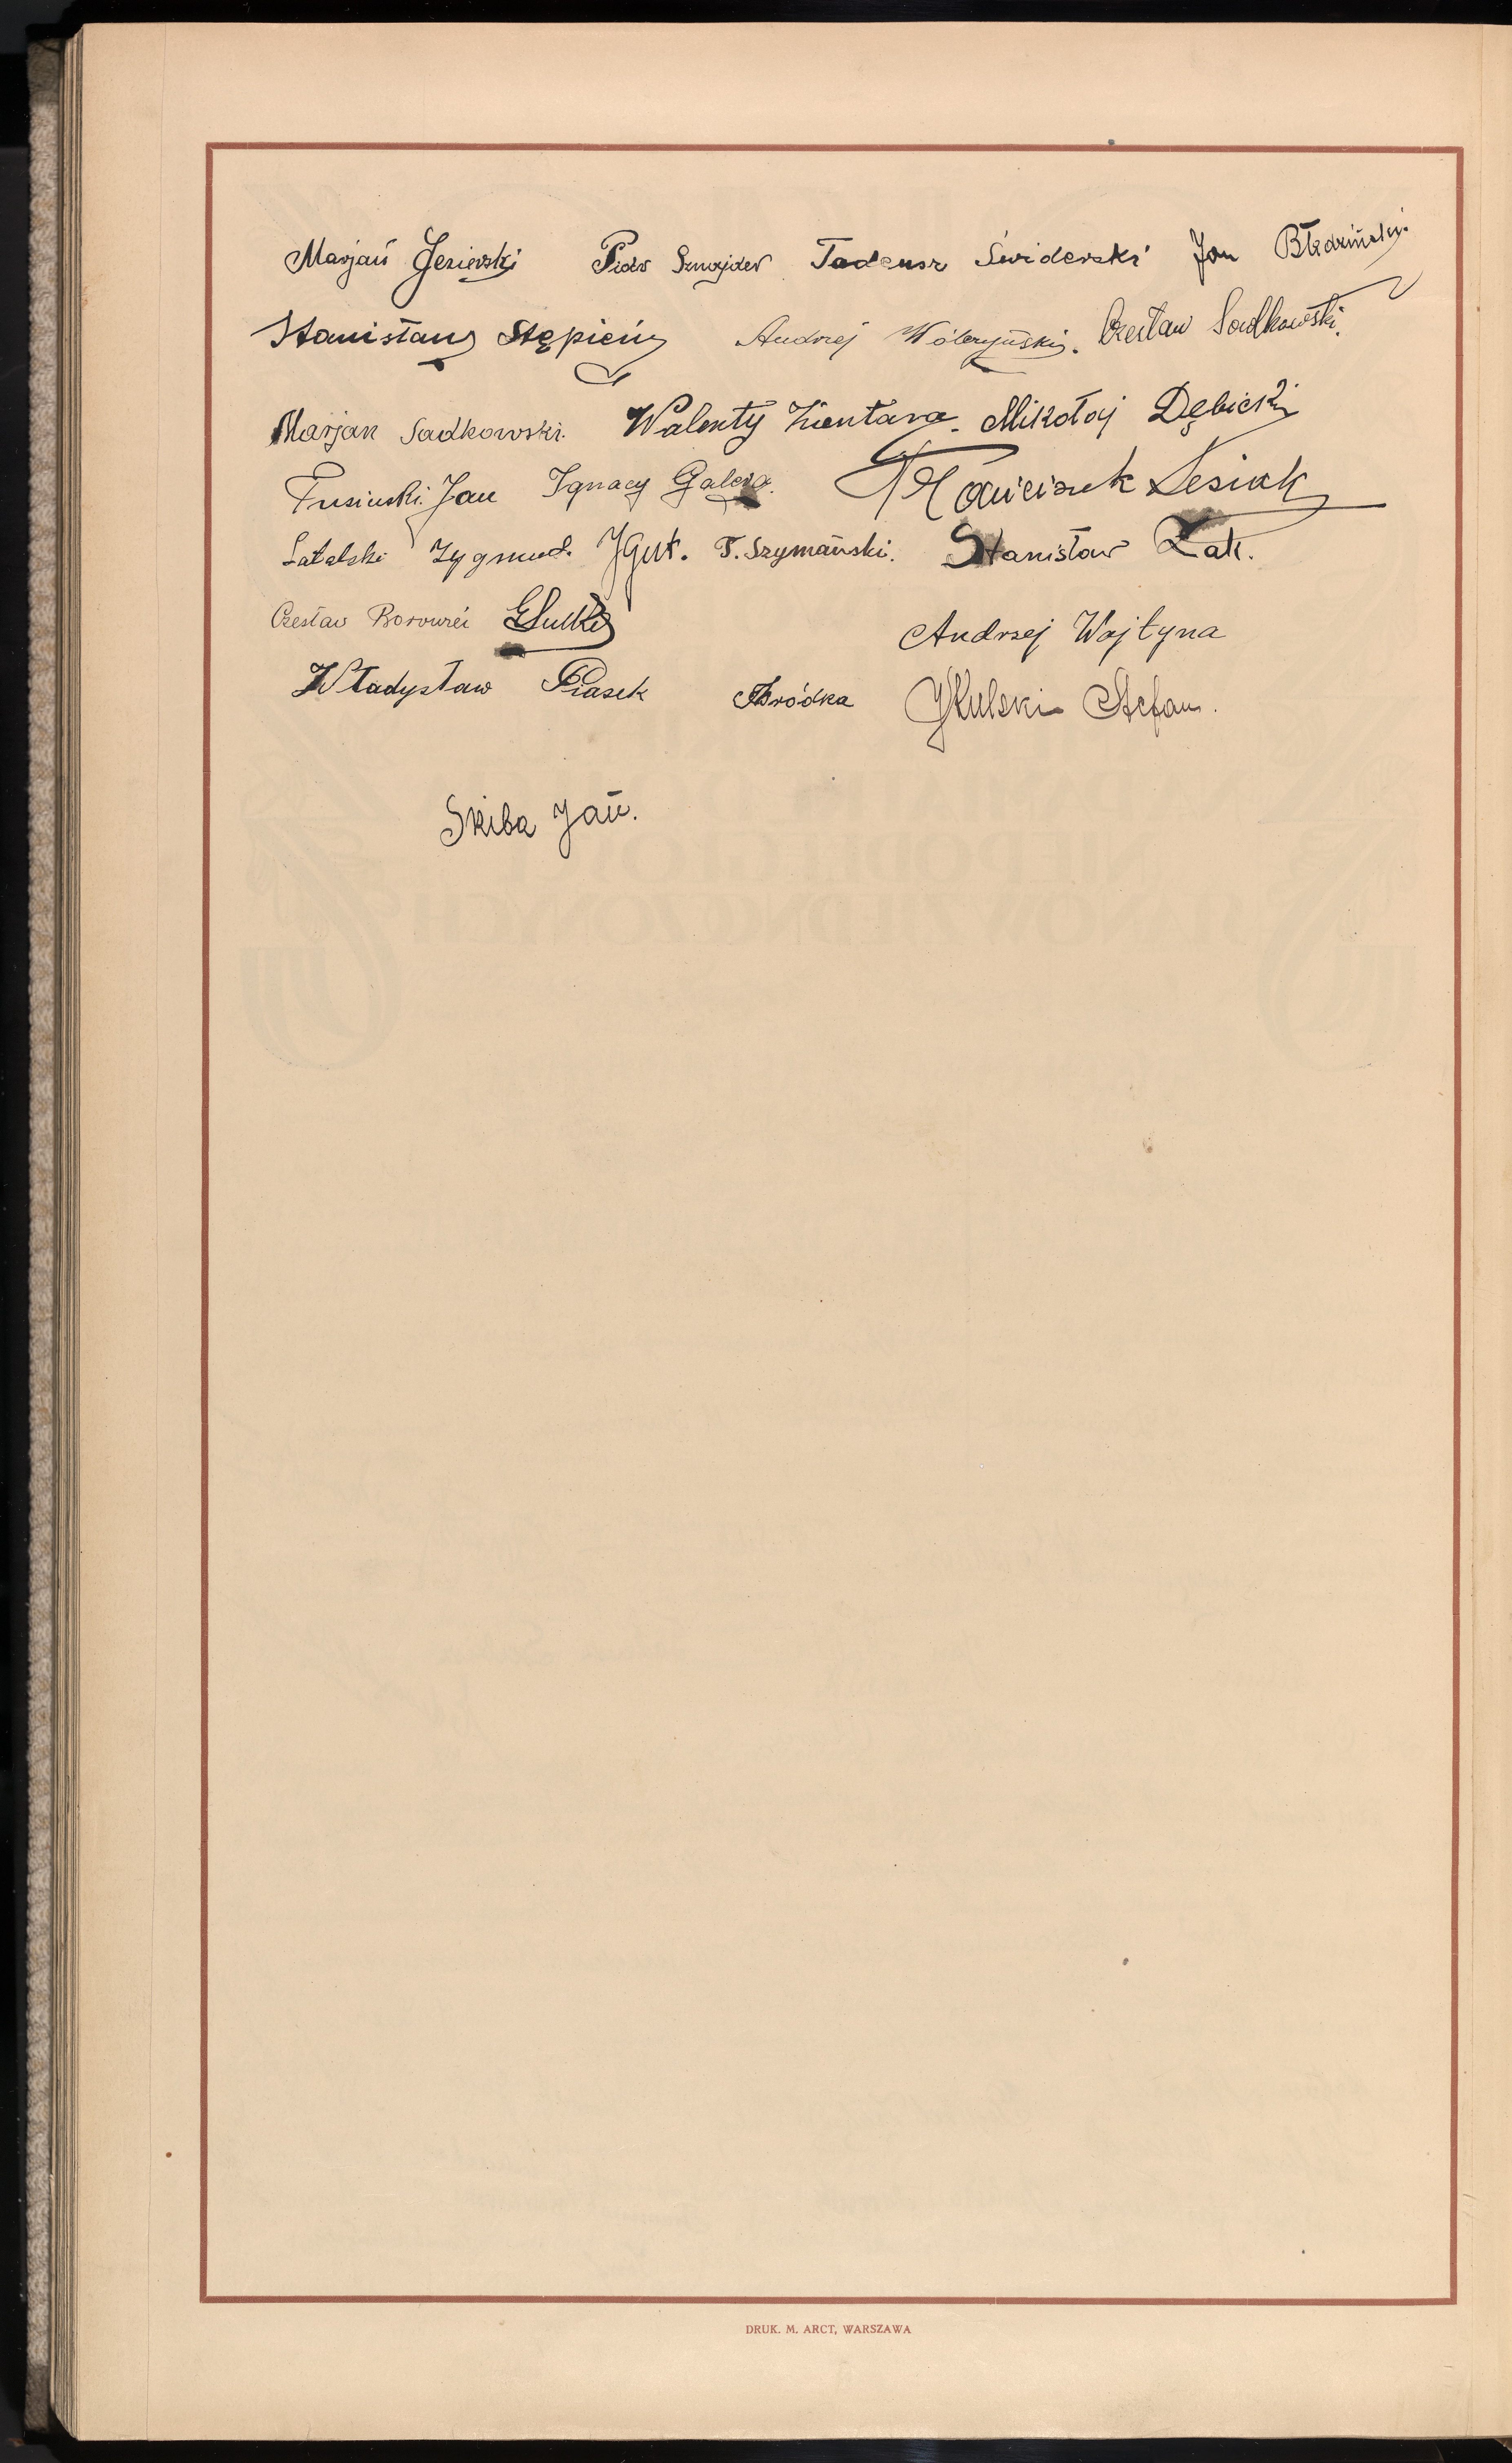 Marjan Jezierski Piotr Sznajder Tadeusz Świderski Jan Błedziński
Stanisław Stępień Andrzej Wólczyński. Czesław Sadkowski.
Marjan Sadkowski. Walenty Zientara. Mikołaj Dębicki
Fusiński Jan Ignacy Galera. Franciszek Lesiak
Latalski Zygmund. J Gut. T. Szymański. Stanisław Żak.
Czesław Andrzej Wojtyna
Władysław Piasek Bródka Kulski Stefan.
Skiba Jan.
DRUK. M. ARCT, WARSZAWA